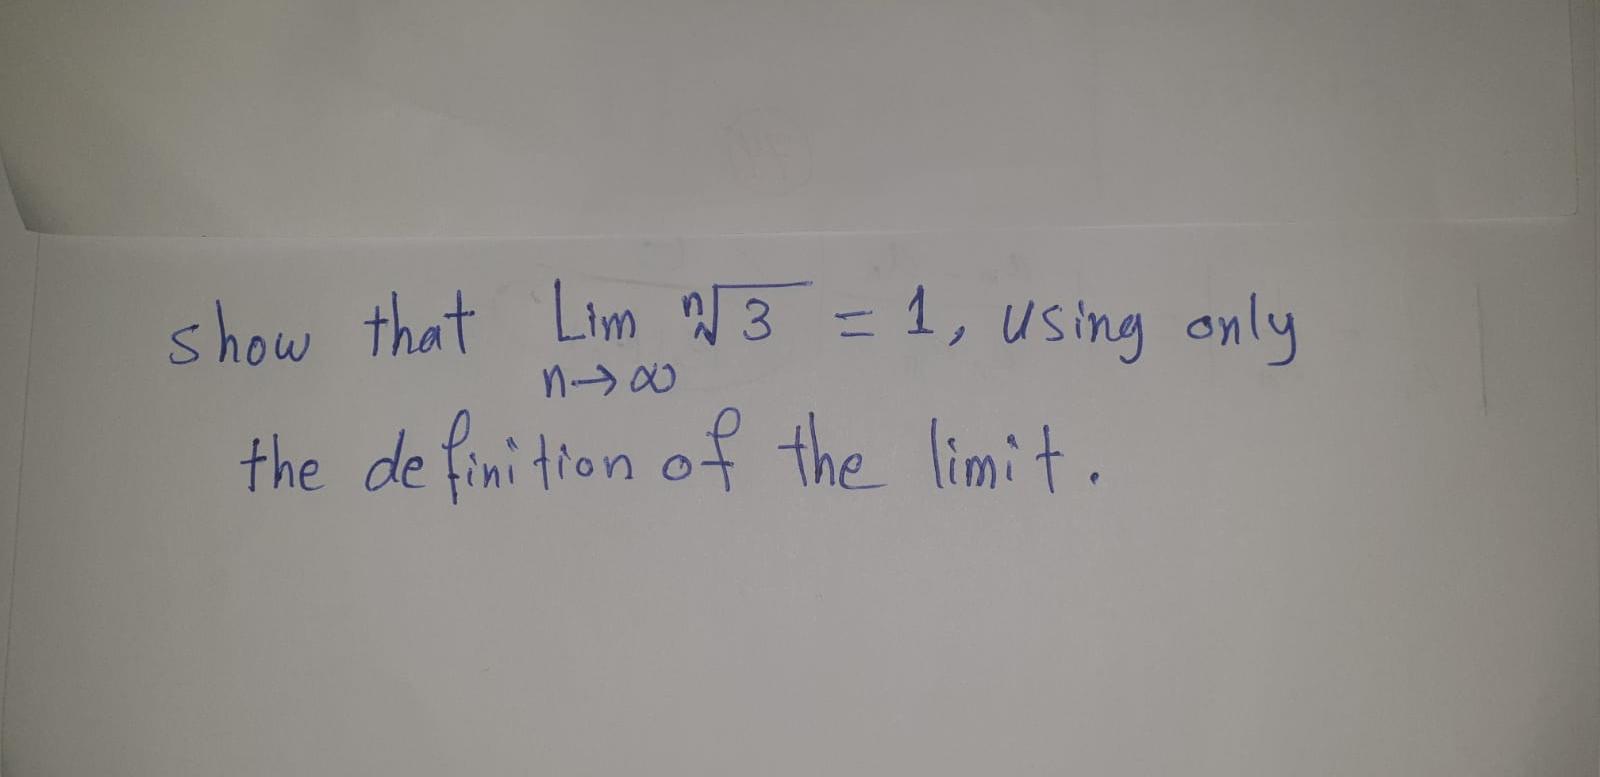 show that Lim ⁿ√3 = 1, using only
n→∞
the definition of the limit.